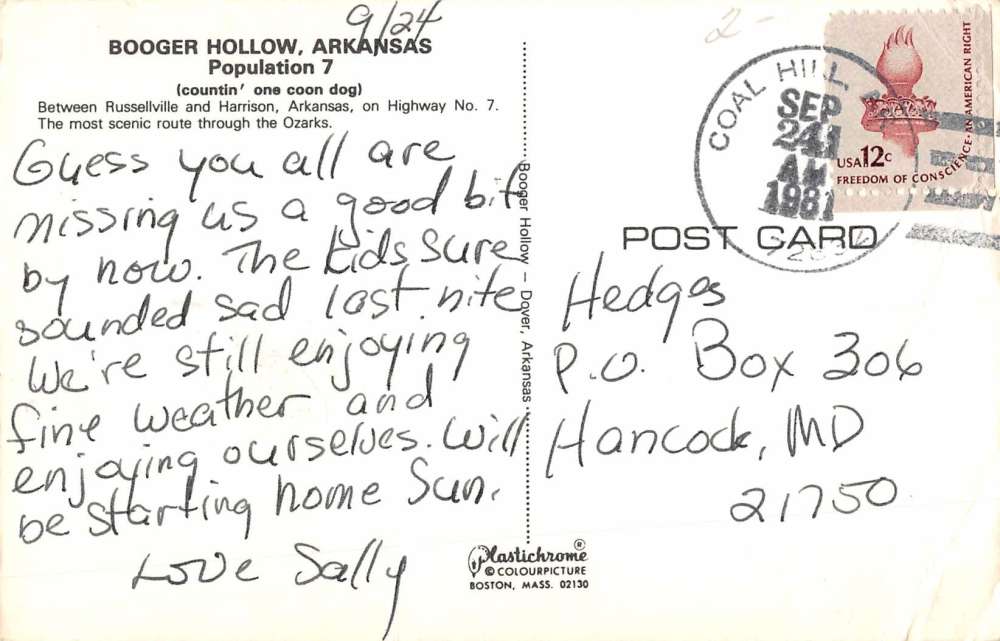 9/24
BOOGER HOLLOW, ARKANSAS
Population 7
(countin' one coon dog)
Between Russellville and Harrison, Arkansas, on Highway No. 7.
The most scenic route through the Ozarks.
Guess you all are
missing us a good bit
by now. The kids sure
sounded sad last nite
We're still enjoying
fine weather and
enjoying ourselves. Will
be starting home Sun.
Love Sally
Booger Hollow – Dover, Arkansas
Plastichrome ®
© COLOURPICTURE
BOSTON, MASS. 02130
2-
COAL HILL,
SEP
24
AM
1981
USA 12c
FREEDOM OF CONSCIENCE-AN AMERICAN RIGHT
POST CARD
Hedges
P.O. Box 306
Hancock, MD
21750